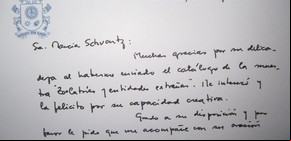 Sa. Marcia Schvartz:
Muchas gracias por su delica-
deza al haberme enviado el catálogo de la mues-
tra "Zoolatrías y entidades extrañas". Me interesó y
la felicito por su capacidad creativa.
Quedo a su disposición y por
favor le pido que me acompañe con su oración